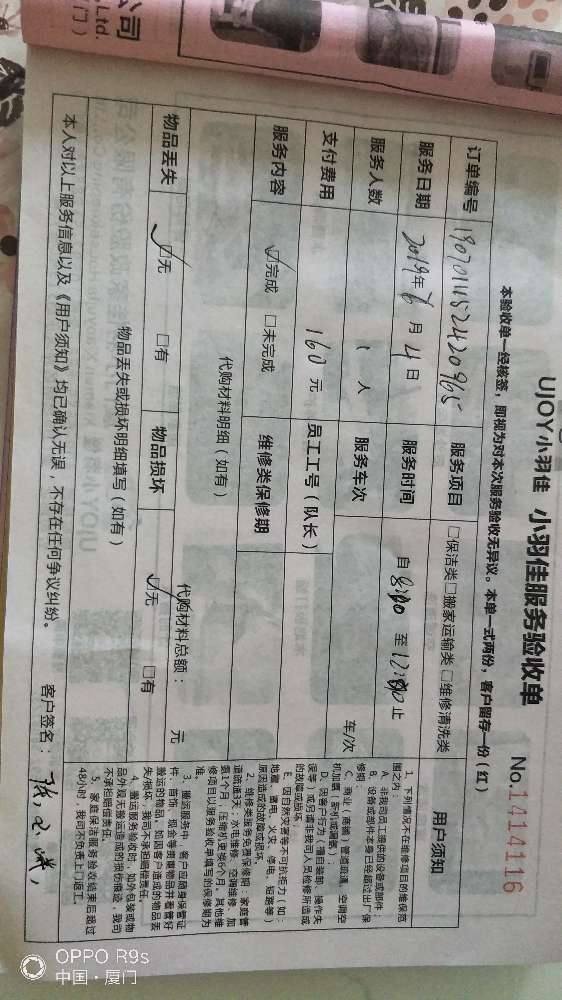 公司
Ltd.
门)
UJOY小羽佳 小羽佳服务验收单
No.1414116
本验收单一经核签，即视为对本次服务验收无异议。本单一式两份，客户留存一份（红）
订单编号 服务项目 □保洁类□搬家运输类□维修清洗类
服务日期 2019年6月4日 服务时间 自8:00至12:00止
服务人数 1人 服务车次 车/次
支付费用 160元 员工工号（队长）
服务内容 ☑完成 □未完成 维修类保修期
代购材料明细（如有） 代购材料总额： 元
物品丢失 ☑无 □有 物品损坏 ☑无 □有
物品丢失或损坏明细填写（如有）
本人对以上服务信息以及《用户须知》均已确认无误，不存在任何争议纠纷。 客户签名：
用户须知
1、下列情况不在维修项目的维保范
围之内：
A、非我司员工提供的设备或部件；
B、设备或部件本身已经超过出厂保
修期；
C、商业（商铺）管道疏通、空调空
机加氨、配机或漏氨；
D、因客户行为（擅自装卸、操作失
误等）或另请非我司人员检修所造成
的故障或损坏
E、因自然灾害等不可抗拒力（如：
地震、雷电、火灾、停电、短路等）
原因造成的故障或损坏。
2、维修类服务免费保修期：家庭管
道疏通3天；水电维修、空调维修、加
氨1个月；压缩机更换6个月，其他维
修项目以服务验收单填写的保修期为
准。
3、搬运服务中，客户应随身保管证
件、首饰、现金等贵重物品并看管好
搬运的物品。如因客户造成的物品丢
失/损坏，我司不承担赔偿责任。
4、搬运服务验收时，如外包装或物
品外观无搬运造成的损伤痕迹，我司
不承担赔偿责任。
5、家庭保洁服务验收结束后超过
48小时，我司不负责上门返工。
OPPO R9s
中国·厦门